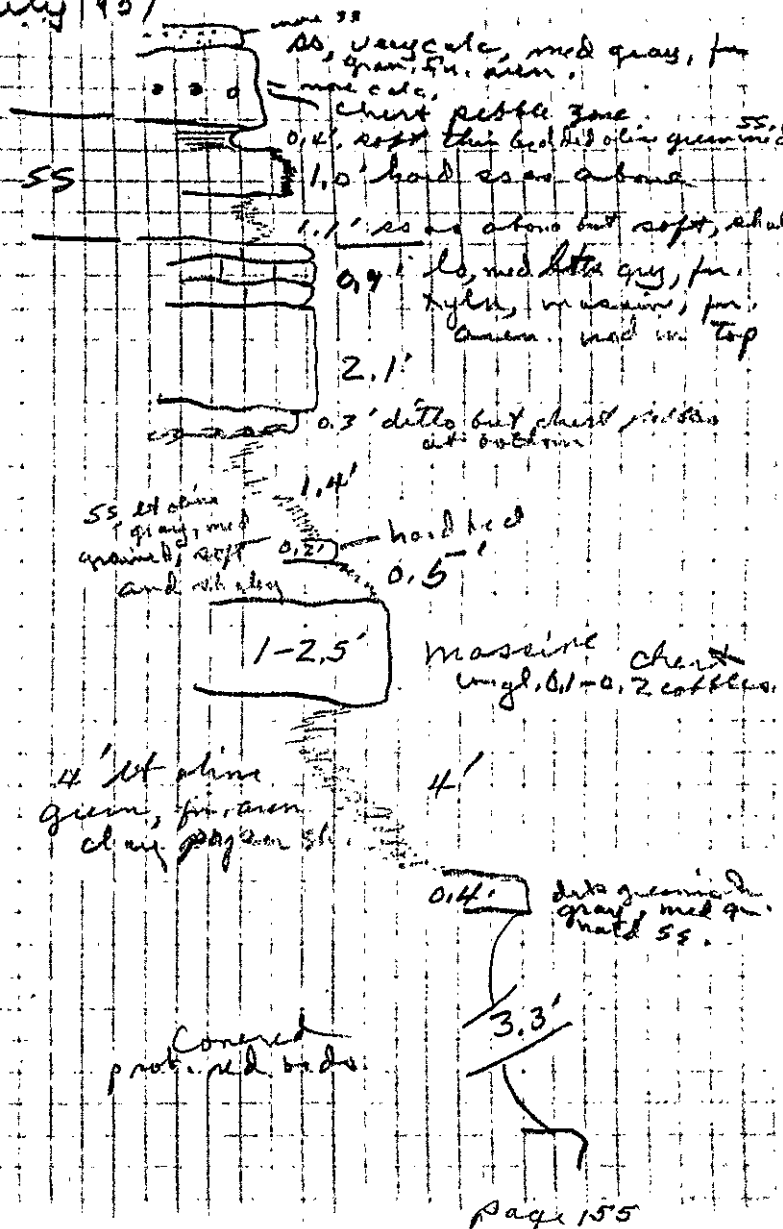 July 195
more ss
ss, very calc, med gray, fn
gran, fn. aren.
more calc,
chert pebble zone
0.4' soft thin bedded olive green med ss,
SS
1.0' hard ss as above
1.1' ss as above but soft, shal
0.9' ls, med gry, fn.
xyln, massive, fn.
aren. top
2.1'
0.3' ditto but chert
at bottom
1.4'
SS lt olive
gray, med
grained, soft
and shaley
0.2'
hard bed
0.5'
1-2.5'
massive chert
cngl. 0.1-0.2 cobbles.
4' lt olive
green, fn. aren
clay paper sh.
4'
0.4'
drk greenish
gray, med gr.
hard ss.
3.3'
Covered
prob. red beds.
page 155